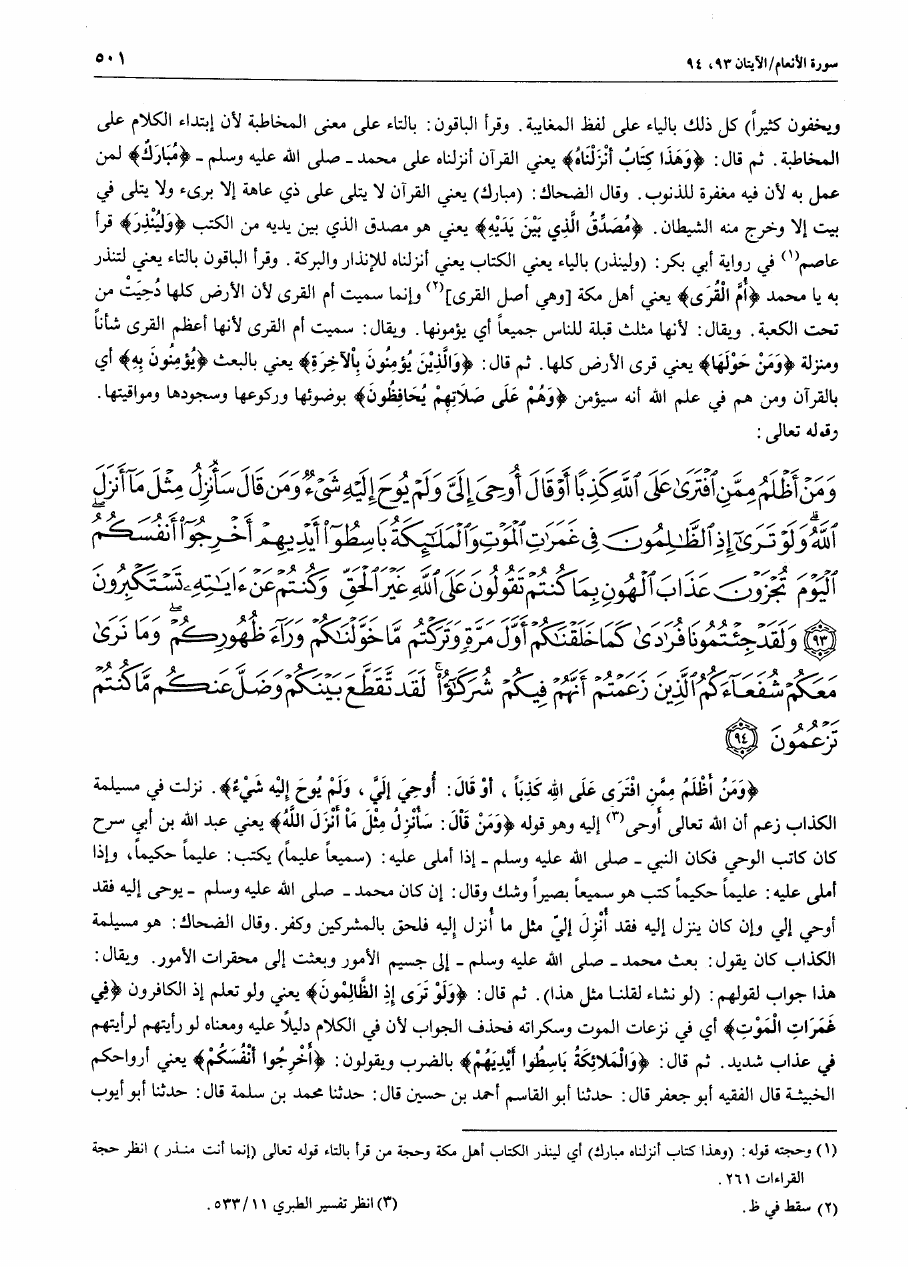 سورة الأنعام/الآيتان ٩٣، ٩٤
٥٠١
ويخفون كثيراً) كل ذلك بالياء على لفظ المغايبة. وقرأ الباقون: بالتاء على معنى المخاطبة لأن إبتداء الكلام على
المخاطبة. ثم قال: ﴿وَهَذَا كِتَابٌ أَنْزَلْنَاهُ﴾ يعني القرآن أنزلناه على محمد - صلى الله عليه وسلم - ﴿مُبَارَكٌ﴾ لمن
عمل به لأن فيه مغفرة للذنوب. وقال الضحاك: (مبارك) يعني القرآن لا يتلى على ذي عاهة إلا برىء ولا يتلى في
بيت إلا وخرج منه الشيطان. ﴿مُصَدِّقُ الَّذِي بَيْنَ يَدَيْهِ﴾ يعني هو مصدق الذي بين يديه من الكتب ﴿وَلِيُنْذِرَ﴾ قرأ
عاصم(١) في رواية أبي بكر: (ولينذر) بالياء يعني الكتاب يعني أنزلناه للإنذار والبركة. وقرأ الباقون بالتاء يعني لتنذر
به يا محمد ﴿أُمَّ الْقُرَى﴾ يعني أهل مكة [وهي أصل القرى](٢) وإنما سميت أم القرى لأن الأرض كلها دُحِيَتْ من
تحت الكعبة. ويقال: لأنها مثلث قبلة للناس جميعاً أي يؤمونها. ويقال: سميت أم القرى لأنها أعظم القرى شأناً
ومنزلة ﴿وَمَنْ حَوْلَهَا﴾ يعني قرى الأرض كلها. ثم قال: ﴿وَالَّذِيْنَ يُؤْمِنُونَ بِالآخِرَةِ﴾ يعني بالبعث ﴿يُؤْمِنُونَ بِهِ﴾ أي
بالقرآن ومن هم في علم الله أنه سيؤمن ﴿وَهُمْ عَلَى صَلَاتِهِمْ يُحَافِظُونَ﴾ بوضوئها وركوعها وسجودها ومواقيتها.
وقوله تعالى:
وَمَنْ أَظْلَمُ مِمَّنِ ٱفْتَرَىٰ عَلَى ٱللَّهِ كَذِبًا أَوْ قَالَ أُوحِىَ إِلَىَّ وَلَمْ يُوحَ إِلَيْهِ شَىْءٌ وَمَن قَالَ سَأُنزِلُ مِثْلَ مَآ أَنزَلَ
ٱللَّهُ ۗ وَلَوْ تَرَىٰٓ إِذِ ٱلظَّٰلِمُونَ فِى غَمَرَٰتِ ٱلْمَوْتِ وَٱلْمَلَٰٓئِكَةُ بَاسِطُوٓا۟ أَيْدِيهِمْ أَخْرِجُوٓا۟ أَنفُسَكُمُ ۖ
ٱلْيَوْمَ تُجْزَوْنَ عَذَابَ ٱلْهُونِ بِمَا كُنتُمْ تَقُولُونَ عَلَى ٱللَّهِ غَيْرَ ٱلْحَقِّ وَكُنتُمْ عَنْ ءَايَٰتِهِۦ تَسْتَكْبِرُونَ
﴿٩٣﴾ وَلَقَدْ جِئْتُمُونَا فُرَٰدَىٰ كَمَا خَلَقْنَٰكُمْ أَوَّلَ مَرَّةٍ وَتَرَكْتُم مَّا خَوَّلْنَٰكُمْ وَرَآءَ ظُهُورِكُمْ ۖ وَمَا نَرَىٰ
مَعَكُمْ شُفَعَآءَكُمُ ٱلَّذِينَ زَعَمْتُمْ أَنَّهُمْ فِيكُمْ شُرَكَٰٓؤُا۟ ۚ لَقَد تَّقَطَّعَ بَيْنَكُمْ وَضَلَّ عَنكُم مَّا كُنتُمْ
تَزْعُمُونَ ﴿٩٤﴾
﴿وَمَنْ أَظْلَمُ مِمَّنِ افْتَرَى عَلَى اللهِ كَذِبَاً، أَوْ قَالَ: أُوحِيَ إِلَيَّ، وَلَمْ يُوحَ إِلَيْهِ شَيْءٌ﴾. نزلت في مسيلمة
الكذاب زعم أن الله تعالى أوحى(٣) إليه وهو قوله ﴿وَمَنْ قَالَ: سَأُنْزِلُ مِثْلَ مَا أَنْزَلَ اللَّهُ﴾ يعني عبد الله بن أبي سرح
كان كاتب الوحي فكان النبي - صلى الله عليه وسلم - إذا أملى عليه: (سميعاً عليماً) يكتب: عليماً حكيماً، وإذا
أملى عليه: عليماً حكيماً كتب هو سميعاً بصيراً وشك وقال: إن كان محمد - صلى الله عليه وسلم - يوحى إليه فقد
أوحي إلي وإن كان ينزل إليه فقد أُنْزِلَ إليّ مثل ما أُنزل إليه فلحق بالمشركين وكفر. وقال الضحاك: هو مسيلمة
الكذاب كان يقول: بعث محمد - صلى الله عليه وسلم - إلى جسيم الأمور وبعثت إلى محقرات الأمور. ويقال:
هذا جواب لقولهم: (لو نشاء لقلنا مثل هذا). ثم قال: ﴿وَلَوْ تَرَى إِذِ الظَّالِمُونَ﴾ يعني ولو تعلم إذ الكافرون ﴿فِي
غَمَرَاتِ الْمَوْتِ﴾ أي في نزعات الموت وسكراته فحذف الجواب لأن في الكلام دليلاً عليه ومعناه لو رأيتهم لرأيتهم
في عذاب شديد. ثم قال: ﴿وَالْمَلائِكَةُ بَاسِطُوا أَيْدِيَهُمْ﴾ بالضرب ويقولون: ﴿أَخْرِجُوا أَنْفُسَكُمْ﴾ يعني أرواحكم
الخبيثة قال الفقيه أبو جعفر قال: حدثنا أبو القاسم أحمد بن حسين قال: حدثنا محمد بن سلمة قال: حدثنا أبو أيوب
(١) وحجته قوله: (وهذا كتاب أنزلناه مبارك) أي لينذر الكتاب أهل مكة وحجة من قرأ بالتاء قوله تعالى (إنما أنت منذر) انظر حجة
القراءات ٢٦١.
(٢) سقط في ظ.
(٣) انظر تفسير الطبري ١١/٥٣٣.